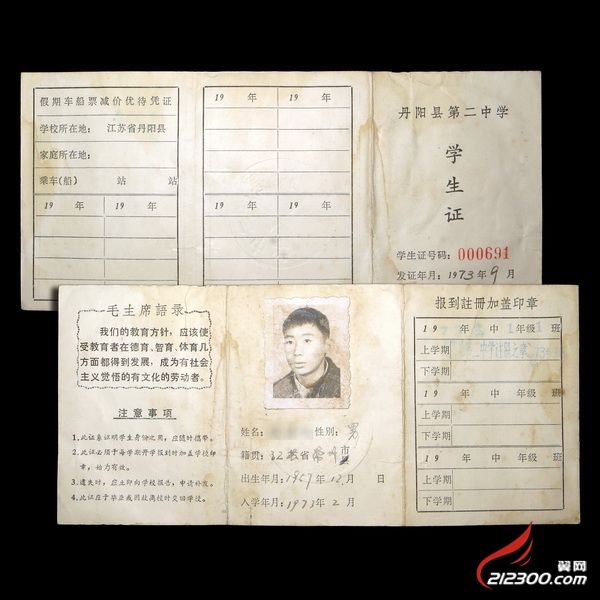 假期车船票减价优待凭证
学校所在地： 江苏省丹阳县
家庭所在地：
乘车(船) 站 站
19 年 19 年
19 年 19 年
19 年 19 年
丹阳县第二中学
学生证
学生证号码：000691
发证年月：1973年9月
毛主席語录
我们的教育方针，应该使
受教育者在德育、智育、体育几
方面都得到发展，成为有社会
主义觉悟的有文化的劳动者。
注意事项
1.此证系证明学生身份之用，应随时携带。
2.此证必须于每学期开学报到时加盖学校印
章，始为有效。
3.遗失时，应立即向学校报告，申请补发。
4.此证应于毕业或因故离校时交回学校。
姓名： 性别：男
籍贯：江苏省常州市
出生年月：1957年12月 日
入学年月：1973年2月
报到註冊加盖印章
19 年 1年级1班
上学期
下学期
19 年 中 年级 班
上学期
下学期
19 年 中 年级 班
上学期
下学期
翼网
212300.com